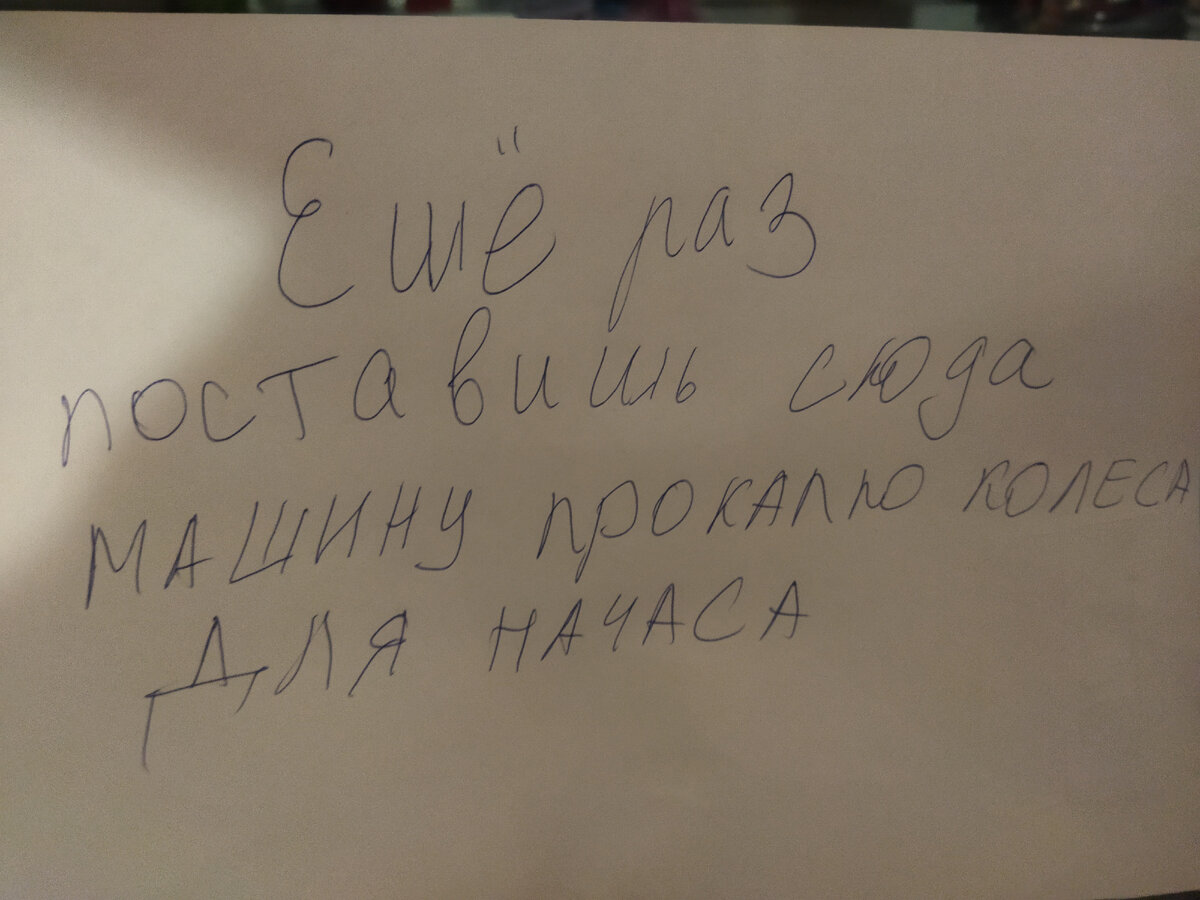 Ешё раз
поставишь сюда
МАШИНУ ПРОКАЛЮ КОЛЕСА
ДЛЯ НАЧАСА